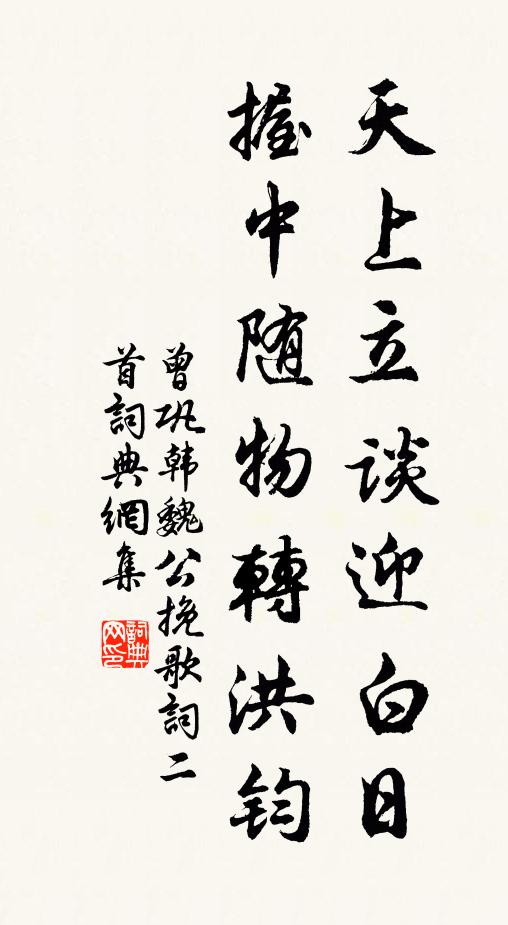 天上立谈迎白日
握中随物轉洪钧
曾巩韩魏公挽歌詞二
首詞典網集
詞典
网印